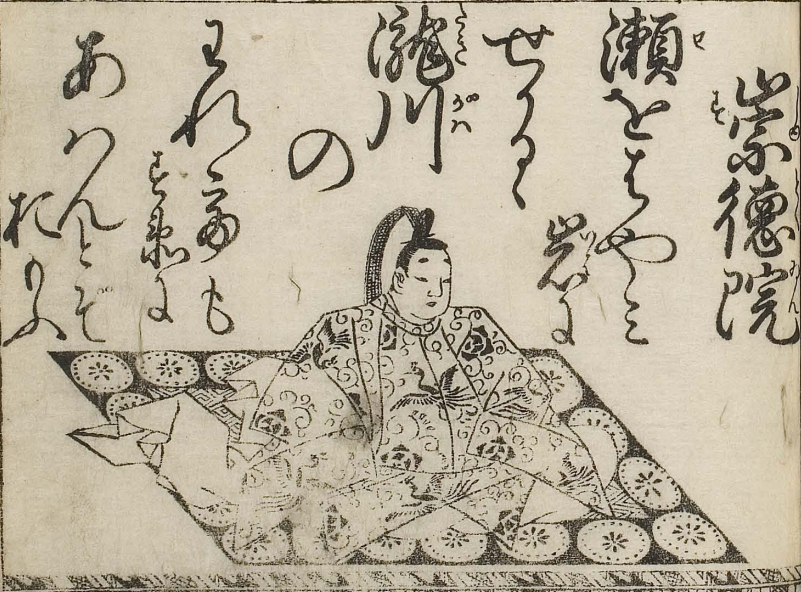 崇徳院
瀬をはやミ
岩に
せかるゝ
瀧川
の
われても
すゑに
あはんとぞ
おもふ